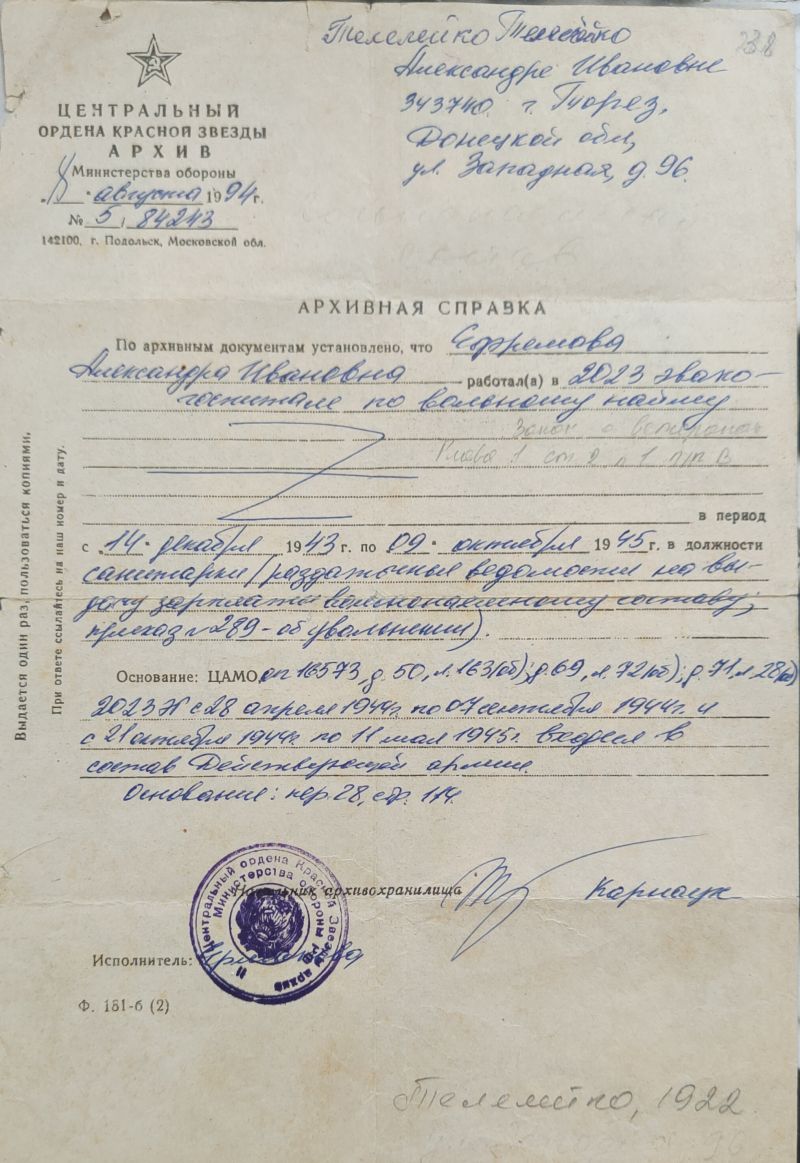 Телелейко Телелейко
238
Александре Ивановне
343740. г. Торез,
Донецкой обл,
ул. Западная, д 96.
ЦЕНТРАЛЬНЫЙ
ОРДЕНА КРАСНОЙ ЗВЕЗДЫ
АРХИВ
Министерства обороны
августа 1994г.
№ 5/84243
142100, г. Подольск, Московской обл.
АРХИВНАЯ СПРАВКА
По архивным документам установлено, что Ефремова
Александра Ивановна работал(а) в 2023 эвако-
госпитале по вольному найму
Закон о ветеранах
Глава 1 ст 2 п 1 п/п В
в период
с „14" декабря 1943 г. по „09" октября 1945 г. в должности
санитарки (раздаточные ведомости на вы-
дачу зарплаты вольнонаемному составу,
приказ № 289 - об увольнении).
Основание: ЦАМО, оп 16573, д. 50, л. 163(об); д. 69, л. 72(об); д. 71, л. 28(об)
2023 ЭГ с 28 апреля 1944г. по 07 сентября 1944г. и
с 21 октября 1944г. по 11 мая 1945г. входил в
состав Действующей армии.
Основание: пер. 28, стр. 174.
Начальник архивохранилища
Исполнитель:
Ф. 181-б (2)
Выдается один раз, пользоваться копиями.
При ответе ссылайтесь на наш номер и дату.
Центральный ордена Красной Звезды архив
Министерства обороны
1922